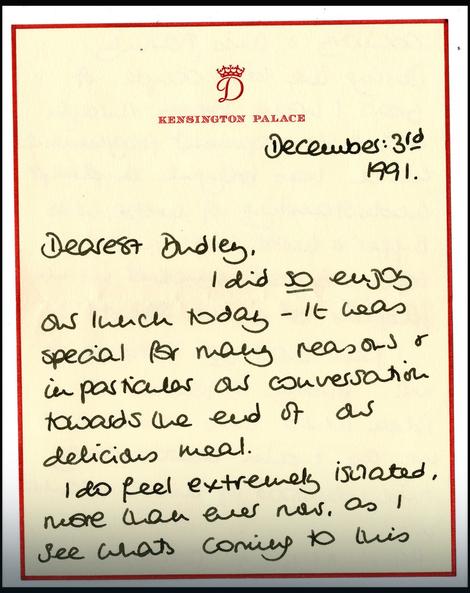 D
KENSINGTON PALACE
December: 3rd
1991.
Dearest Dudley,
I did so enjoy
our lunch today - It was
special for many reasons &
in particular our conversation
towards the end of our
delicious meal.
I do feel extremely isolated,
more than ever now, as I
see whats coming to this